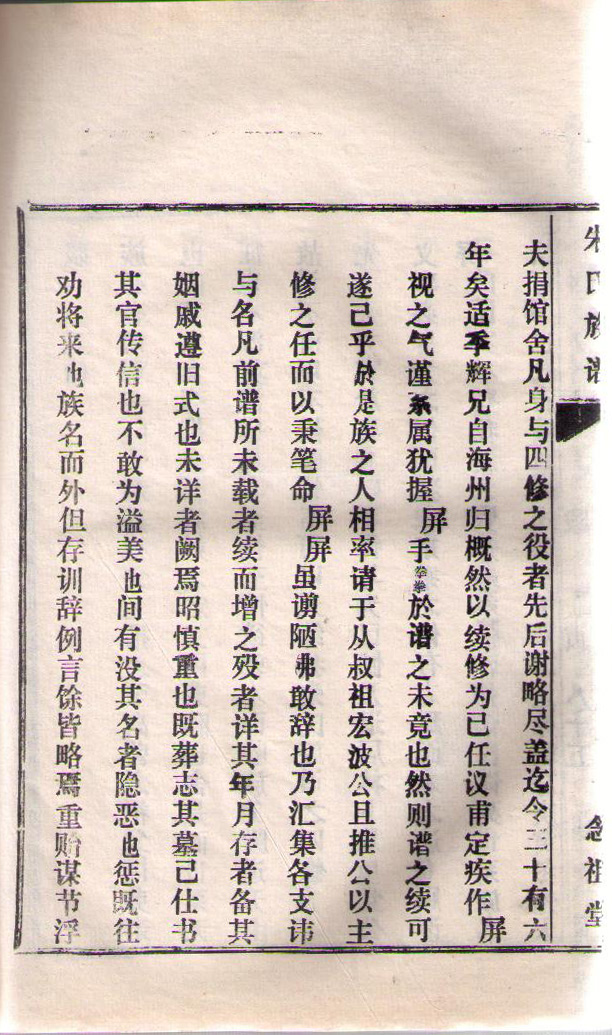 朱氏族谱
念祖堂
夫捐馆舍凡身与四修之役者先后谢略尽盖迄今三十有六
年矣适季辉兄自海州归概然以续修为己任议甫定疾作屏
视之气谨系属犹握屏手拳拳於谱之未竟也然则谱之续可
遂己乎於是族之人相率请于从叔祖宏波公且推公以主
修之任而以秉笔命屏屏虽谫陋弗敢辞也乃汇集各支讳
与名凡前谱所未载者续而增之殁者详其年月存者备其
姻戚遵旧式也未详者阙焉昭慎重也既葬志其墓己仕书
其官传信也不敢为溢美也间有没其名者隐恶也惩既往
劝将来也族名而外但存训辞例言馀皆略焉重贻谋节浮